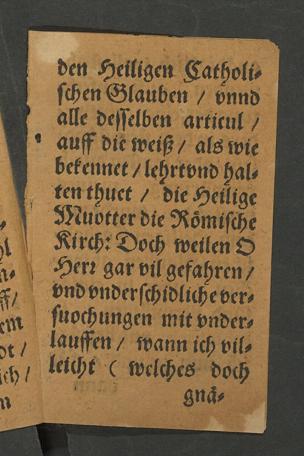 den Heiligen Catholi-
schen Glauben / vnnd
alle desselben articul /
auff die weiß / als wie
bekennet / lehrt vnd hal-
ten thuet / die Heilige
Muotter die Römische
Kirch: Doch weilen O
Herr gar vil gefahren /
vnd vnderschidliche ver-
suochungen mit vnder-
lauffen / wann ich vil-
leicht ( welches doch
gnä-